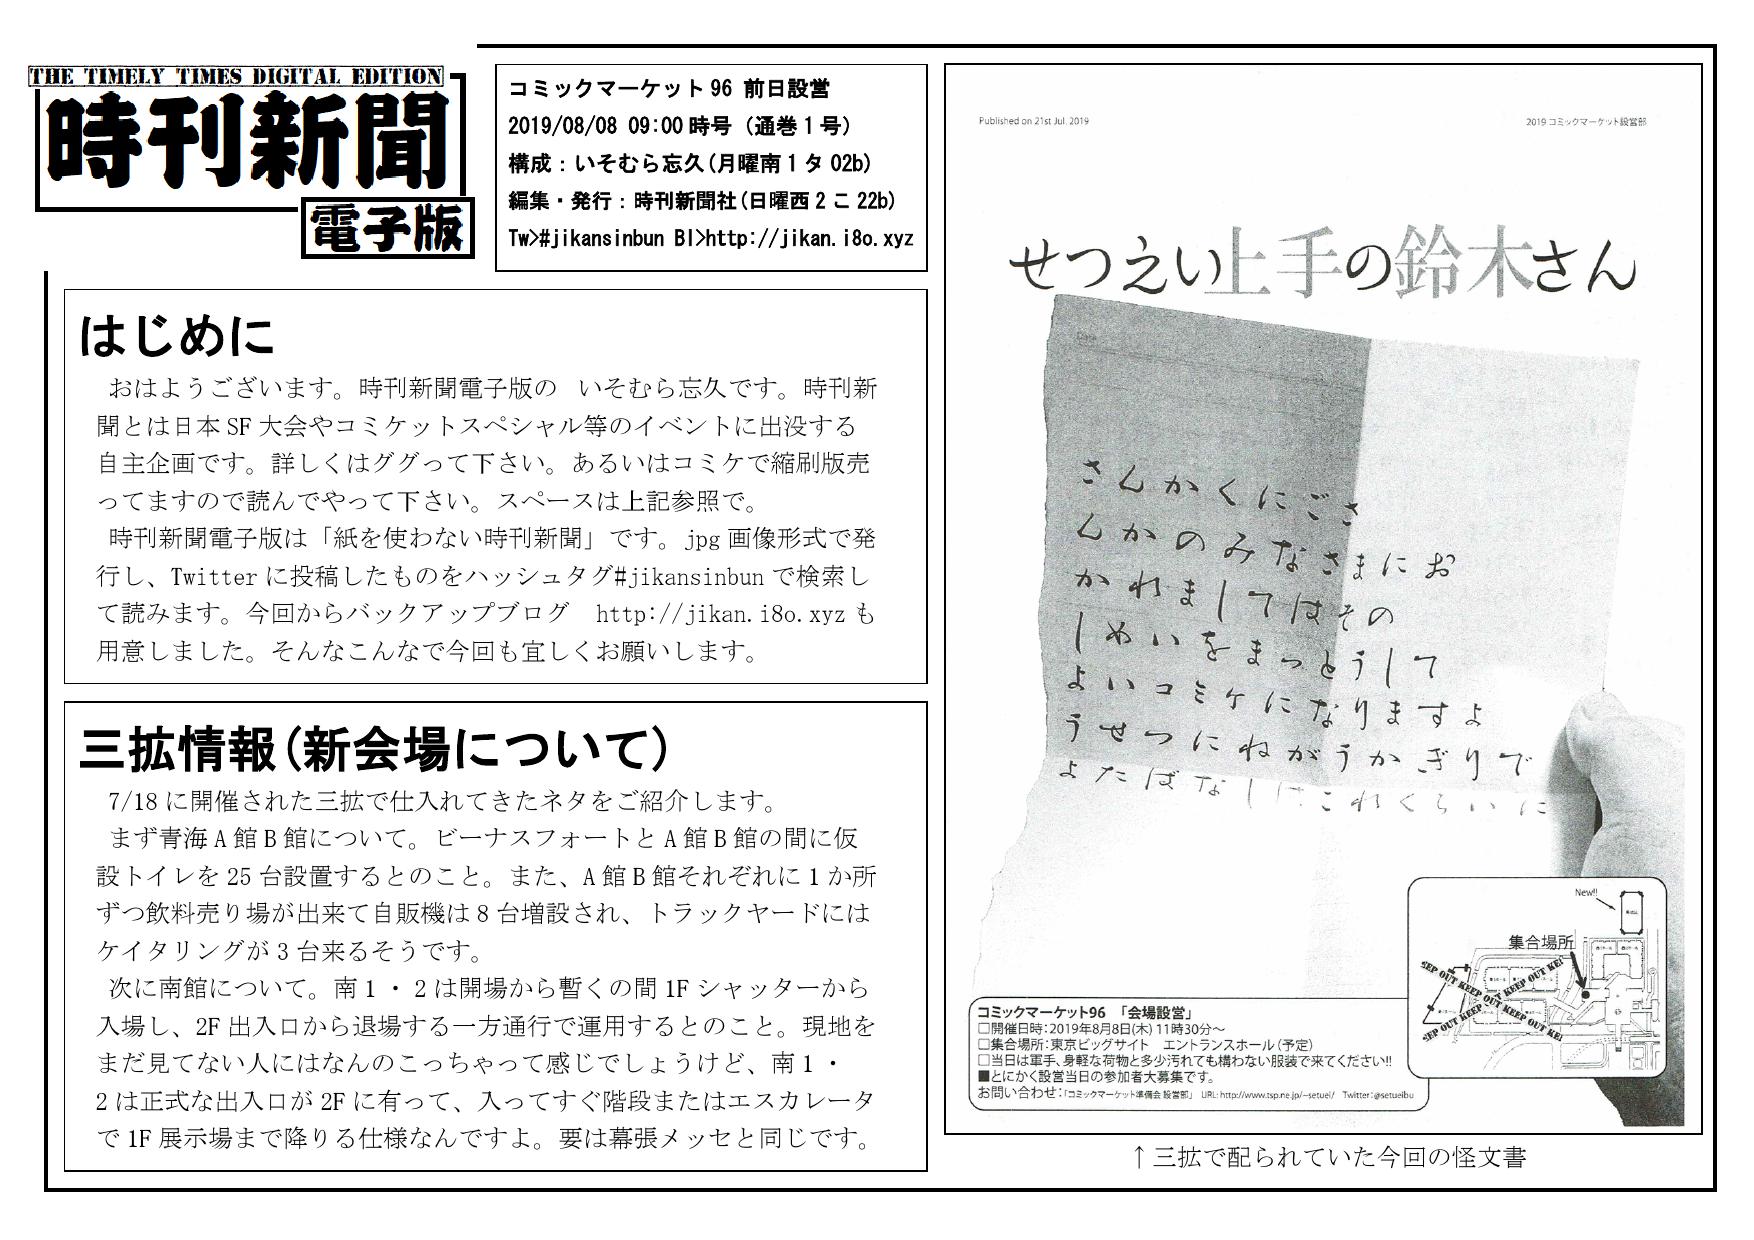 THE TIMELY TIMES DIGITAL EDITION
時刊新聞
電子版
コミックマーケット96 前日設営
2019/08/08 09:00時号（通巻1号）
構成：いそむら忘久(月曜南1タ02b)
編集・発行：時刊新聞社(日曜西2こ22b)
Tw>#jikansinbun Bl>http://jikan.i8o.xyz
はじめに
おはようございます。時刊新聞電子版の　いそむら忘久です。時刊新
聞とは日本SF大会やコミケットスペシャル等のイベントに出没する
自主企画です。詳しくはググって下さい。あるいはコミケで縮刷版売
ってますので読んでやって下さい。スペースは上記参照で。
時刊新聞電子版は「紙を使わない時刊新聞」です。jpg画像形式で発
行し、Twitterに投稿したものをハッシュタグ#jikansinbunで検索し
て読みます。今回からバックアップブログ　http://jikan.i8o.xyzも
用意しました。そんなこんなで今回も宜しくお願いします。
三拡情報(新会場について)
7/18に開催された三拡で仕入れてきたネタをご紹介します。
まず青海A館B館について。ビーナスフォートとA館B館の間に仮
設トイレを25台設置するとのこと。また、A館B館それぞれに1か所
ずつ飲料売り場が出来て自販機は8台増設され、トラックヤードには
ケイタリングが3台来るそうです。
次に南館について。南1・2は開場から暫くの間1Fシャッターから
入場し、2F出入口から退場する一方通行で運用するとのこと。現地を
まだ見てない人にはなんのこっちゃって感じでしょうけど、南1・
2は正式な出入口が2Fに有って、入ってすぐ階段またはエスカレータ
で1F展示場まで降りる仕様なんですよ。要は幕張メッセと同じです。
Published on 21st Jul. 2019
2019 コミックマーケット設営部
せつえい上手の鈴木さん
さんかくにごさ
んかのみなさまにお
かれましてはその
しめいをまっとうして
よいコミケになりますよ
うせつにねがうかぎりで
よたばなしはこれくらいに
New!!
集合場所
KEEP OUT KEEP OUT KEEP OUT
KEEP OUT KEEP OUT KEEP OUT
コミックマーケット96　「会場設営」
□開催日時：2019年8月8日(木) 11時30分～
□集合場所：東京ビッグサイト　エントランスホール（予定）
□当日は軍手、身軽な荷物と多少汚れても構わない服装で来てください!!
■とにかく設営当日の参加者大募集です。
お問い合わせ：「コミックマーケット準備会 設営部」　URL: http://www.tsp.ne.jp/~setuei/　Twitter：@setueibu
↑三拡で配られていた今回の怪文書